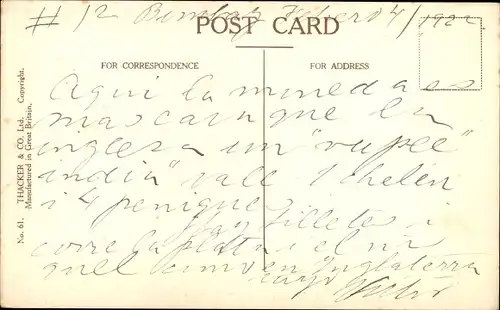 # 12 Bombay Febrero 4/1922
POST CARD
FOR CORRESPONDENCE
FOR ADDRESS
No. 61. THACKER & CO., Ltd. Copyright.
Manufactured in Great Britain.
Aqui la moneda es
mas cara que la
inglesa un "rupee
india" vale 1 chelin
i 4 penique
Hay billetes i
corre la plata i el ni
quel como en Inglaterra